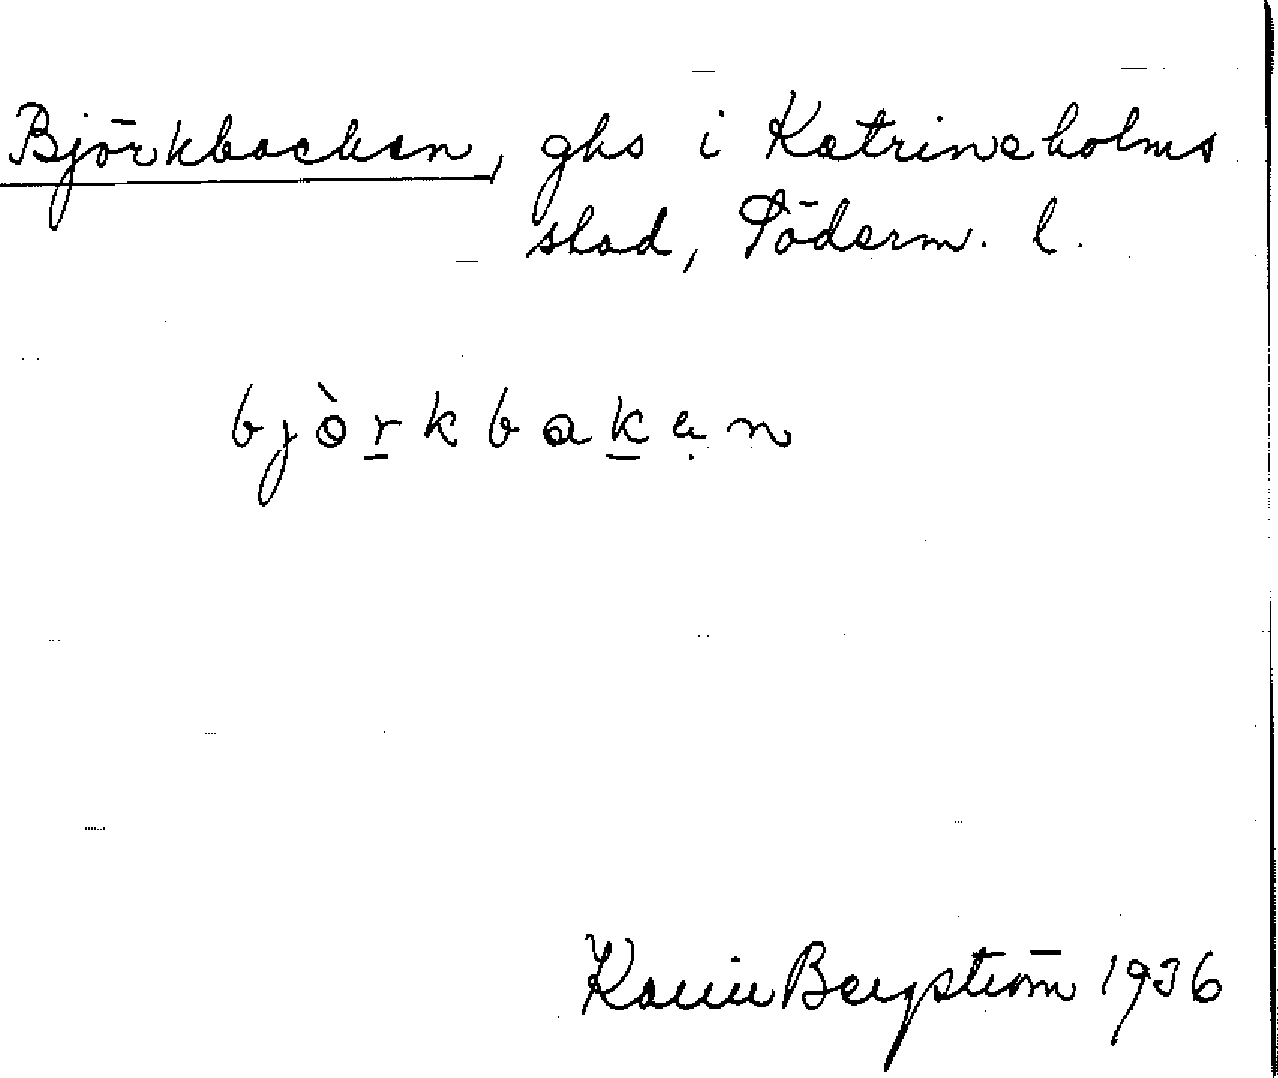 Björkbacken, ghs i Katrineholms
stad, Söderm. l.
bjòrkbakạn
Karin Bergström 1936